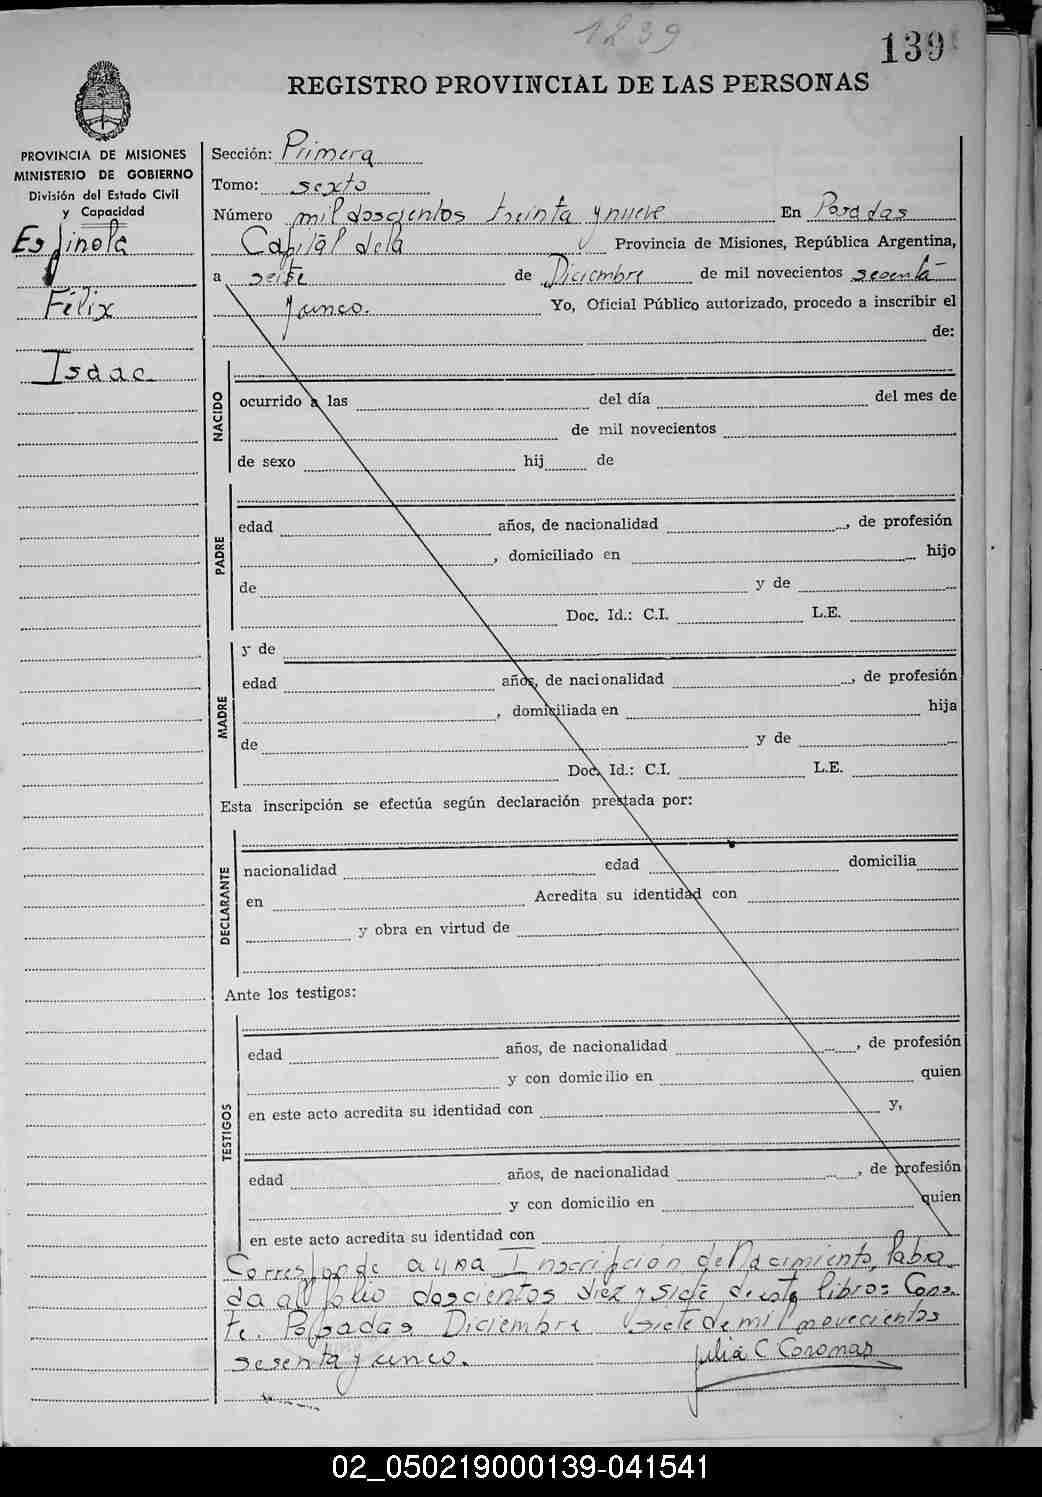 1239
139
REGISTRO PROVINCIAL DE LAS PERSONAS
PROVINCIA DE MISIONES
MINISTERIO DE GOBIERNO
División del Estado Civil
y Capacidad
Espinola
Félix
Isaac
Sección: Primera
Tomo: sexto
Número mil doscientos treinta y nueve En Posadas
Capital dela Provincia de Misiones, República Argentina,
a seite de Diciembre de mil novecientos sesenta
y cinco. Yo, Oficial Público autorizado, procedo a inscribir el
de:
NACIDO
ocurrido a las del día del mes de
de mil novecientos
de sexo hij de
PADRE
edad años, de nacionalidad , de profesión
, domiciliado en hijo
de y de
Doc. Id.: C.I. L.E.
MADRE
y de
edad años, de nacionalidad , de profesión
, domiciliada en hija
de y de
Doc. Id.: C.I. L.E.
Esta inscripción se efectúa según declaración prestada por:
DECLARANTE
nacionalidad edad domicilia
en Acredita su identidad con
y obra en virtud de
Ante los testigos:
TESTIGOS
edad años, de nacionalidad , de profesión
y con domicilio en quien
en este acto acredita su identidad con y,
edad años, de nacionalidad , de profesión
y con domicilio en quien
en este acto acredita su identidad con
Corresponde a una Inscripción de Nacimiento, labra
da al folio doscientos diez y siete de este libro: Cons
te. Posadas Diciembre siete de mil novecientos
sesenta y cinco. Julia C Coromar
02_050219000139-041541